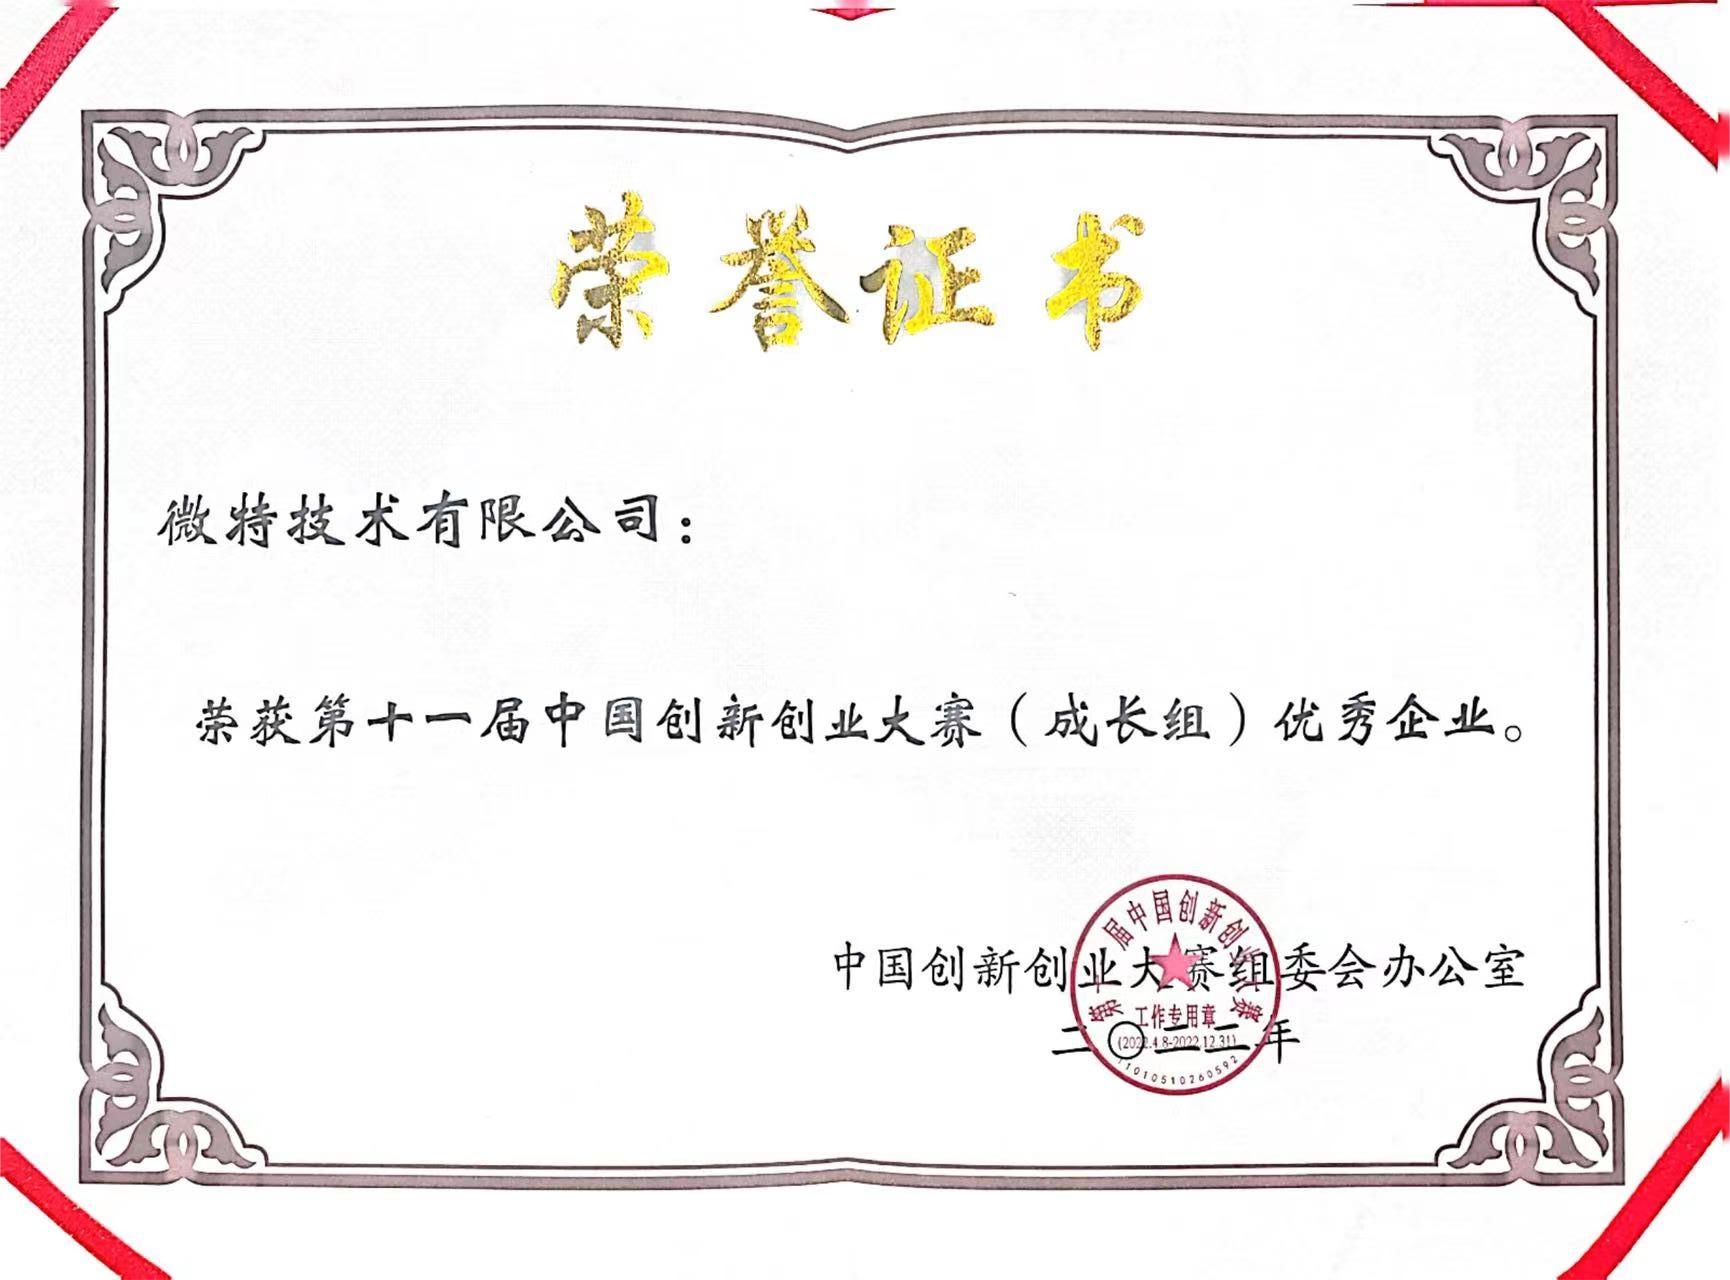 荣誉证书
微特技术有限公司：
荣获第十一届中国创新创业大赛（成长组）优秀企业。
中国创新创业大赛组委会办公室
二〇二二年
第十一届中国创新创业大赛
工作专用章
(2022.4.8-2022.12.31)
11010510260592